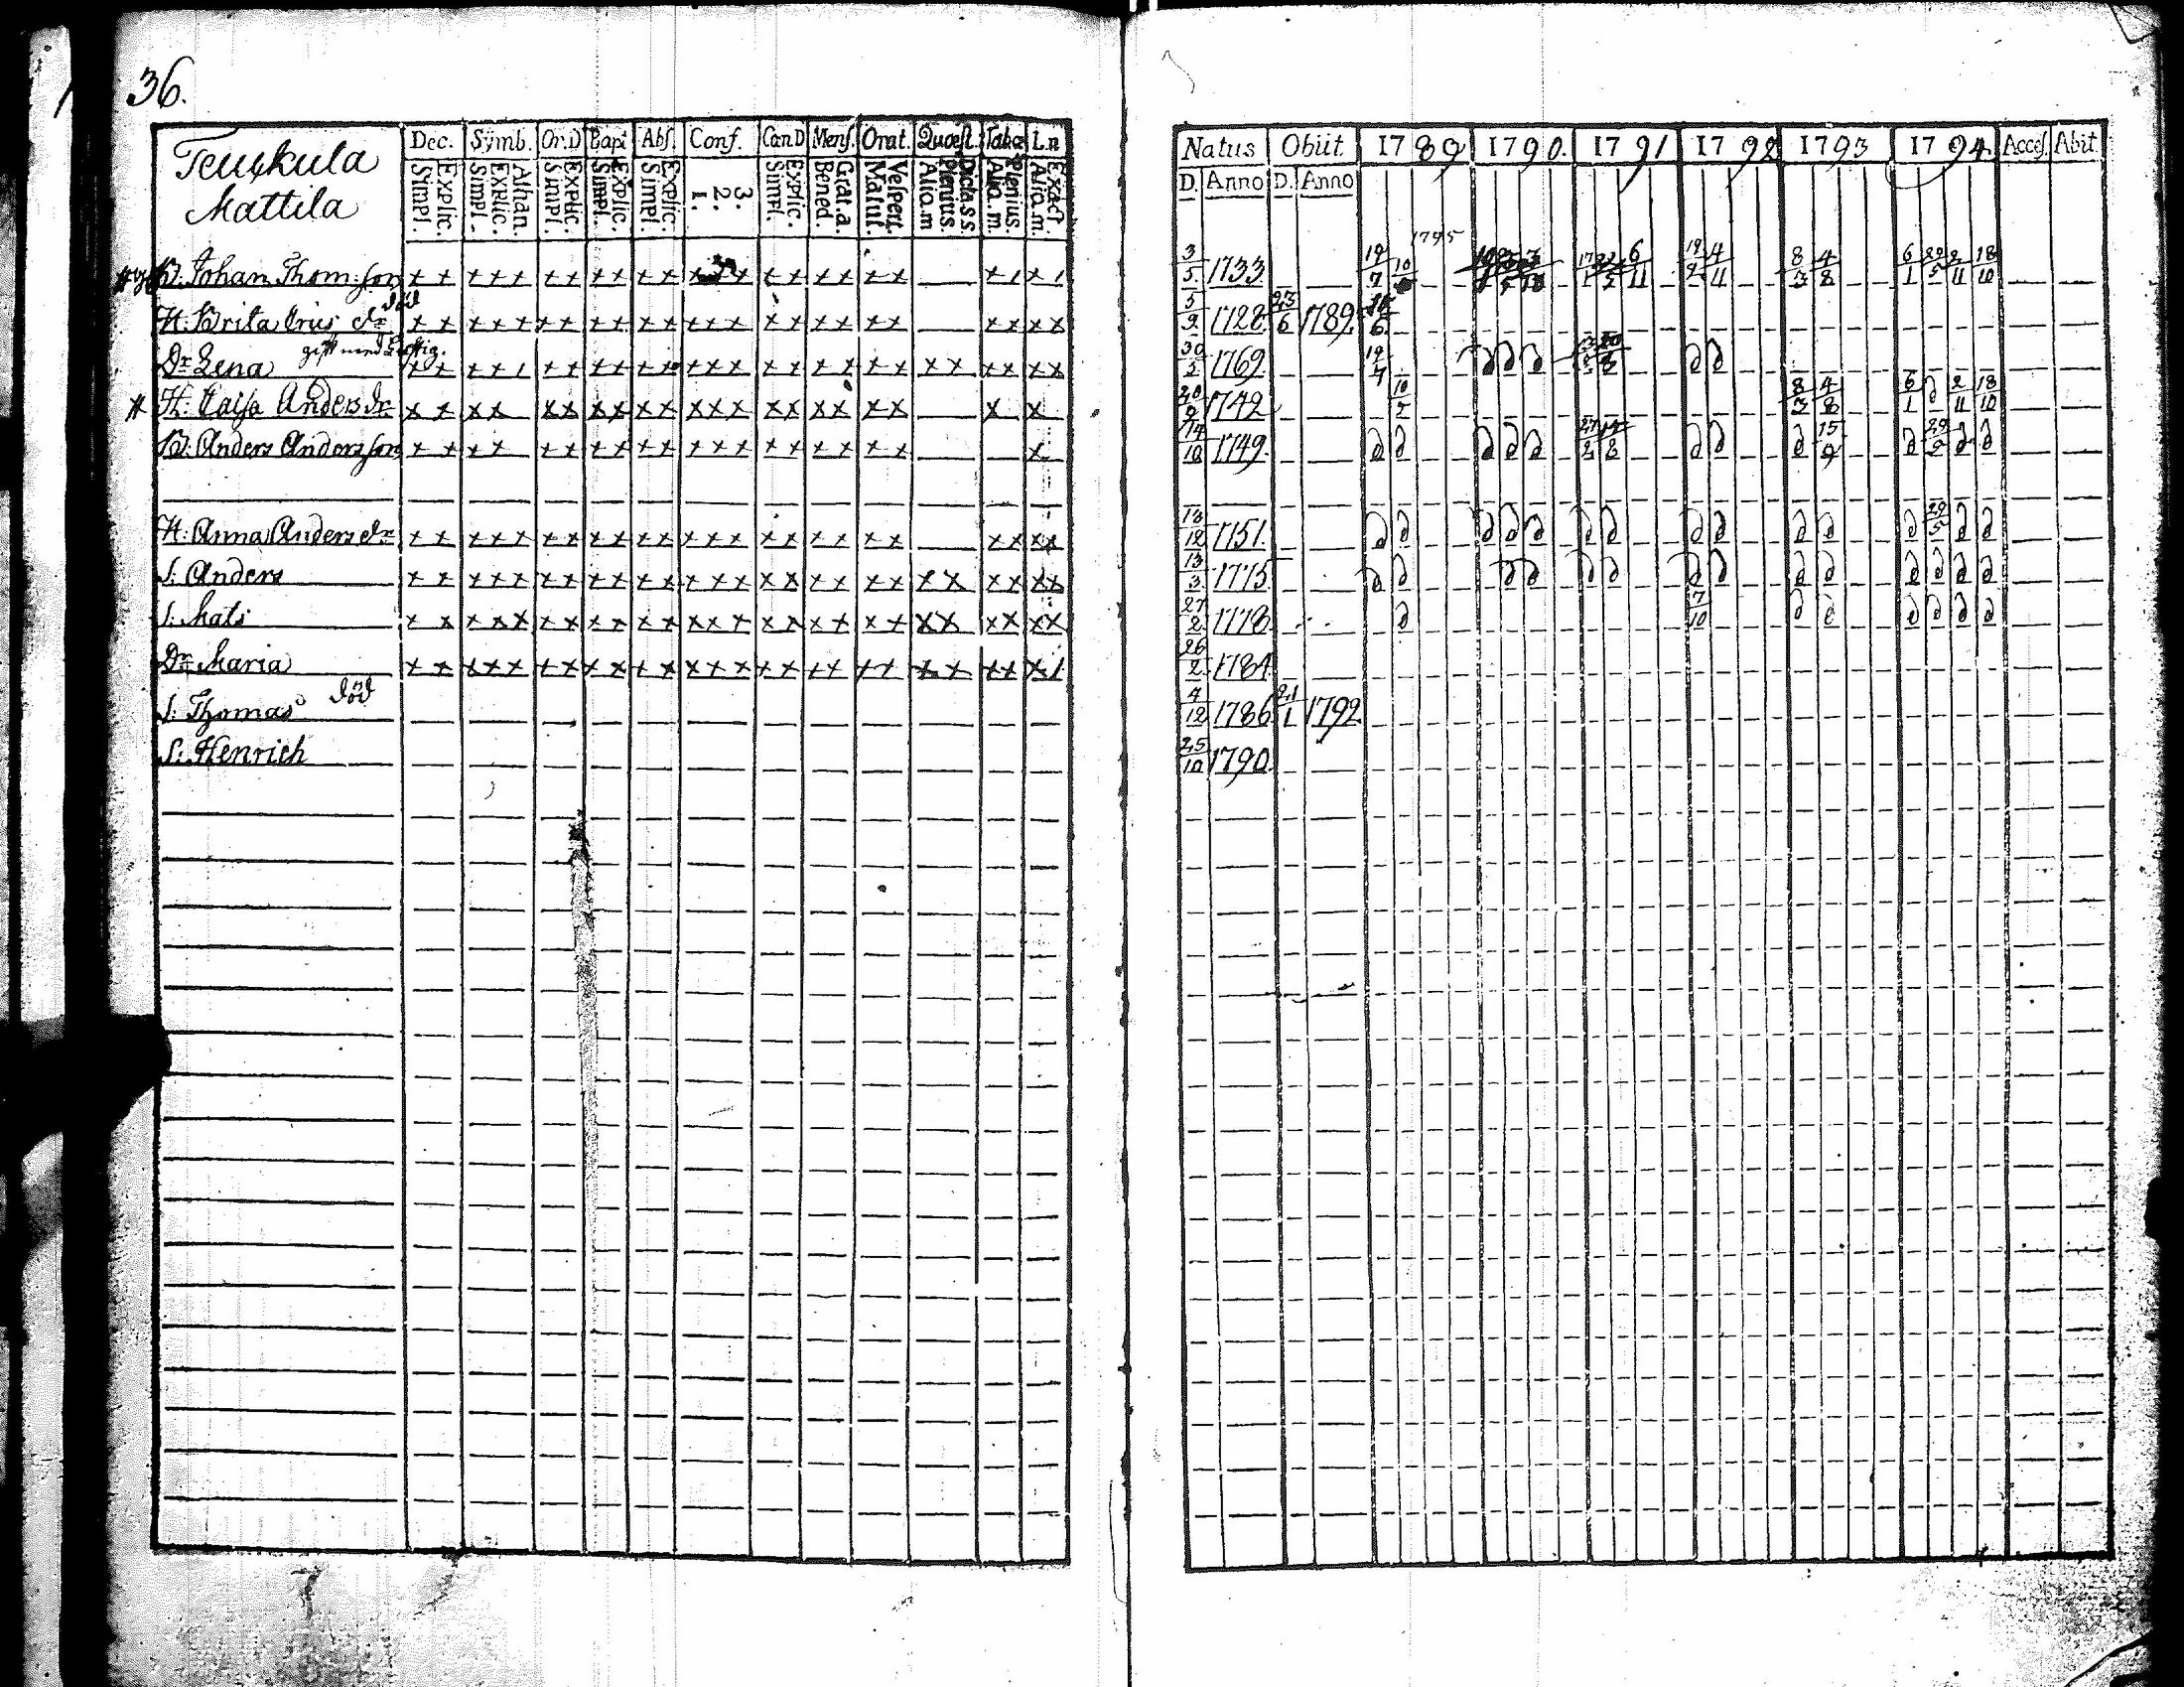 36.
Teuckula
Mattila
Dec. Symb. Or.D Bapt Abs. Conf. Can D Mens. Orat. Quæst. Tabæ L.n
Simpl. Explic. Simpl. Explic. Athan. Simpl. Explic. Simpl. Explic. Simpl. Explic. 1. 2. 3. Simpl. Explic. Bened. Grat.a. Matut. Vespert. Aliq.m Plenius. Dicta S.S Aliq.m. Plenius. Aliq.m. Exact
B. Johan Thom:son x x x x x x x x x x x x x x x x x x x x x
död
H. Brita Eriks dr x x x x x x x x x x x x x x x x x x x x x x x x
gift med
Dr Lena x x x x x x x x x x x x x x x x x x x x x x x x
H. Caisa Anders dr x x x x x x x x x x x x x x x x x x x x x
B. Anders Andersson x x x x x x x x x x x x x x x x x x x x
H. Anna Anders dr x x x x x x x x x x x x x x x x x x x x x x x x
S. Anders x x x x x x x x x x x x x x x x x x x x x x x x x x
S. Mats x x x x x x x x x x x x x x x x x x x x x x x x x x
Dr Maria x x x x x x x x x x x x x x x x x x x x x x x x x
S. Thomas död
S. Henrich
Natus Obiit. 1789 1790. 1791 1792 1793 1794 Acces. Abit.
D. Anno D. Anno
1795
3/5 1733 19/7 6/11 19/2 4/11 8/3 4/8 6/1 29/5 2/11 18/10
5/9 1728 23/6 1789.
30/2 1769 19/7
20/9 1742 10/2 8/3 4/8 6/1 2/11 18/10
14/10 1749 15/9 29/5
18/12 1751. 29/5
13/3 1775
27/2 1778 7/10
26/2 1784
4/12 1786 21/1 1792
25/10 1790